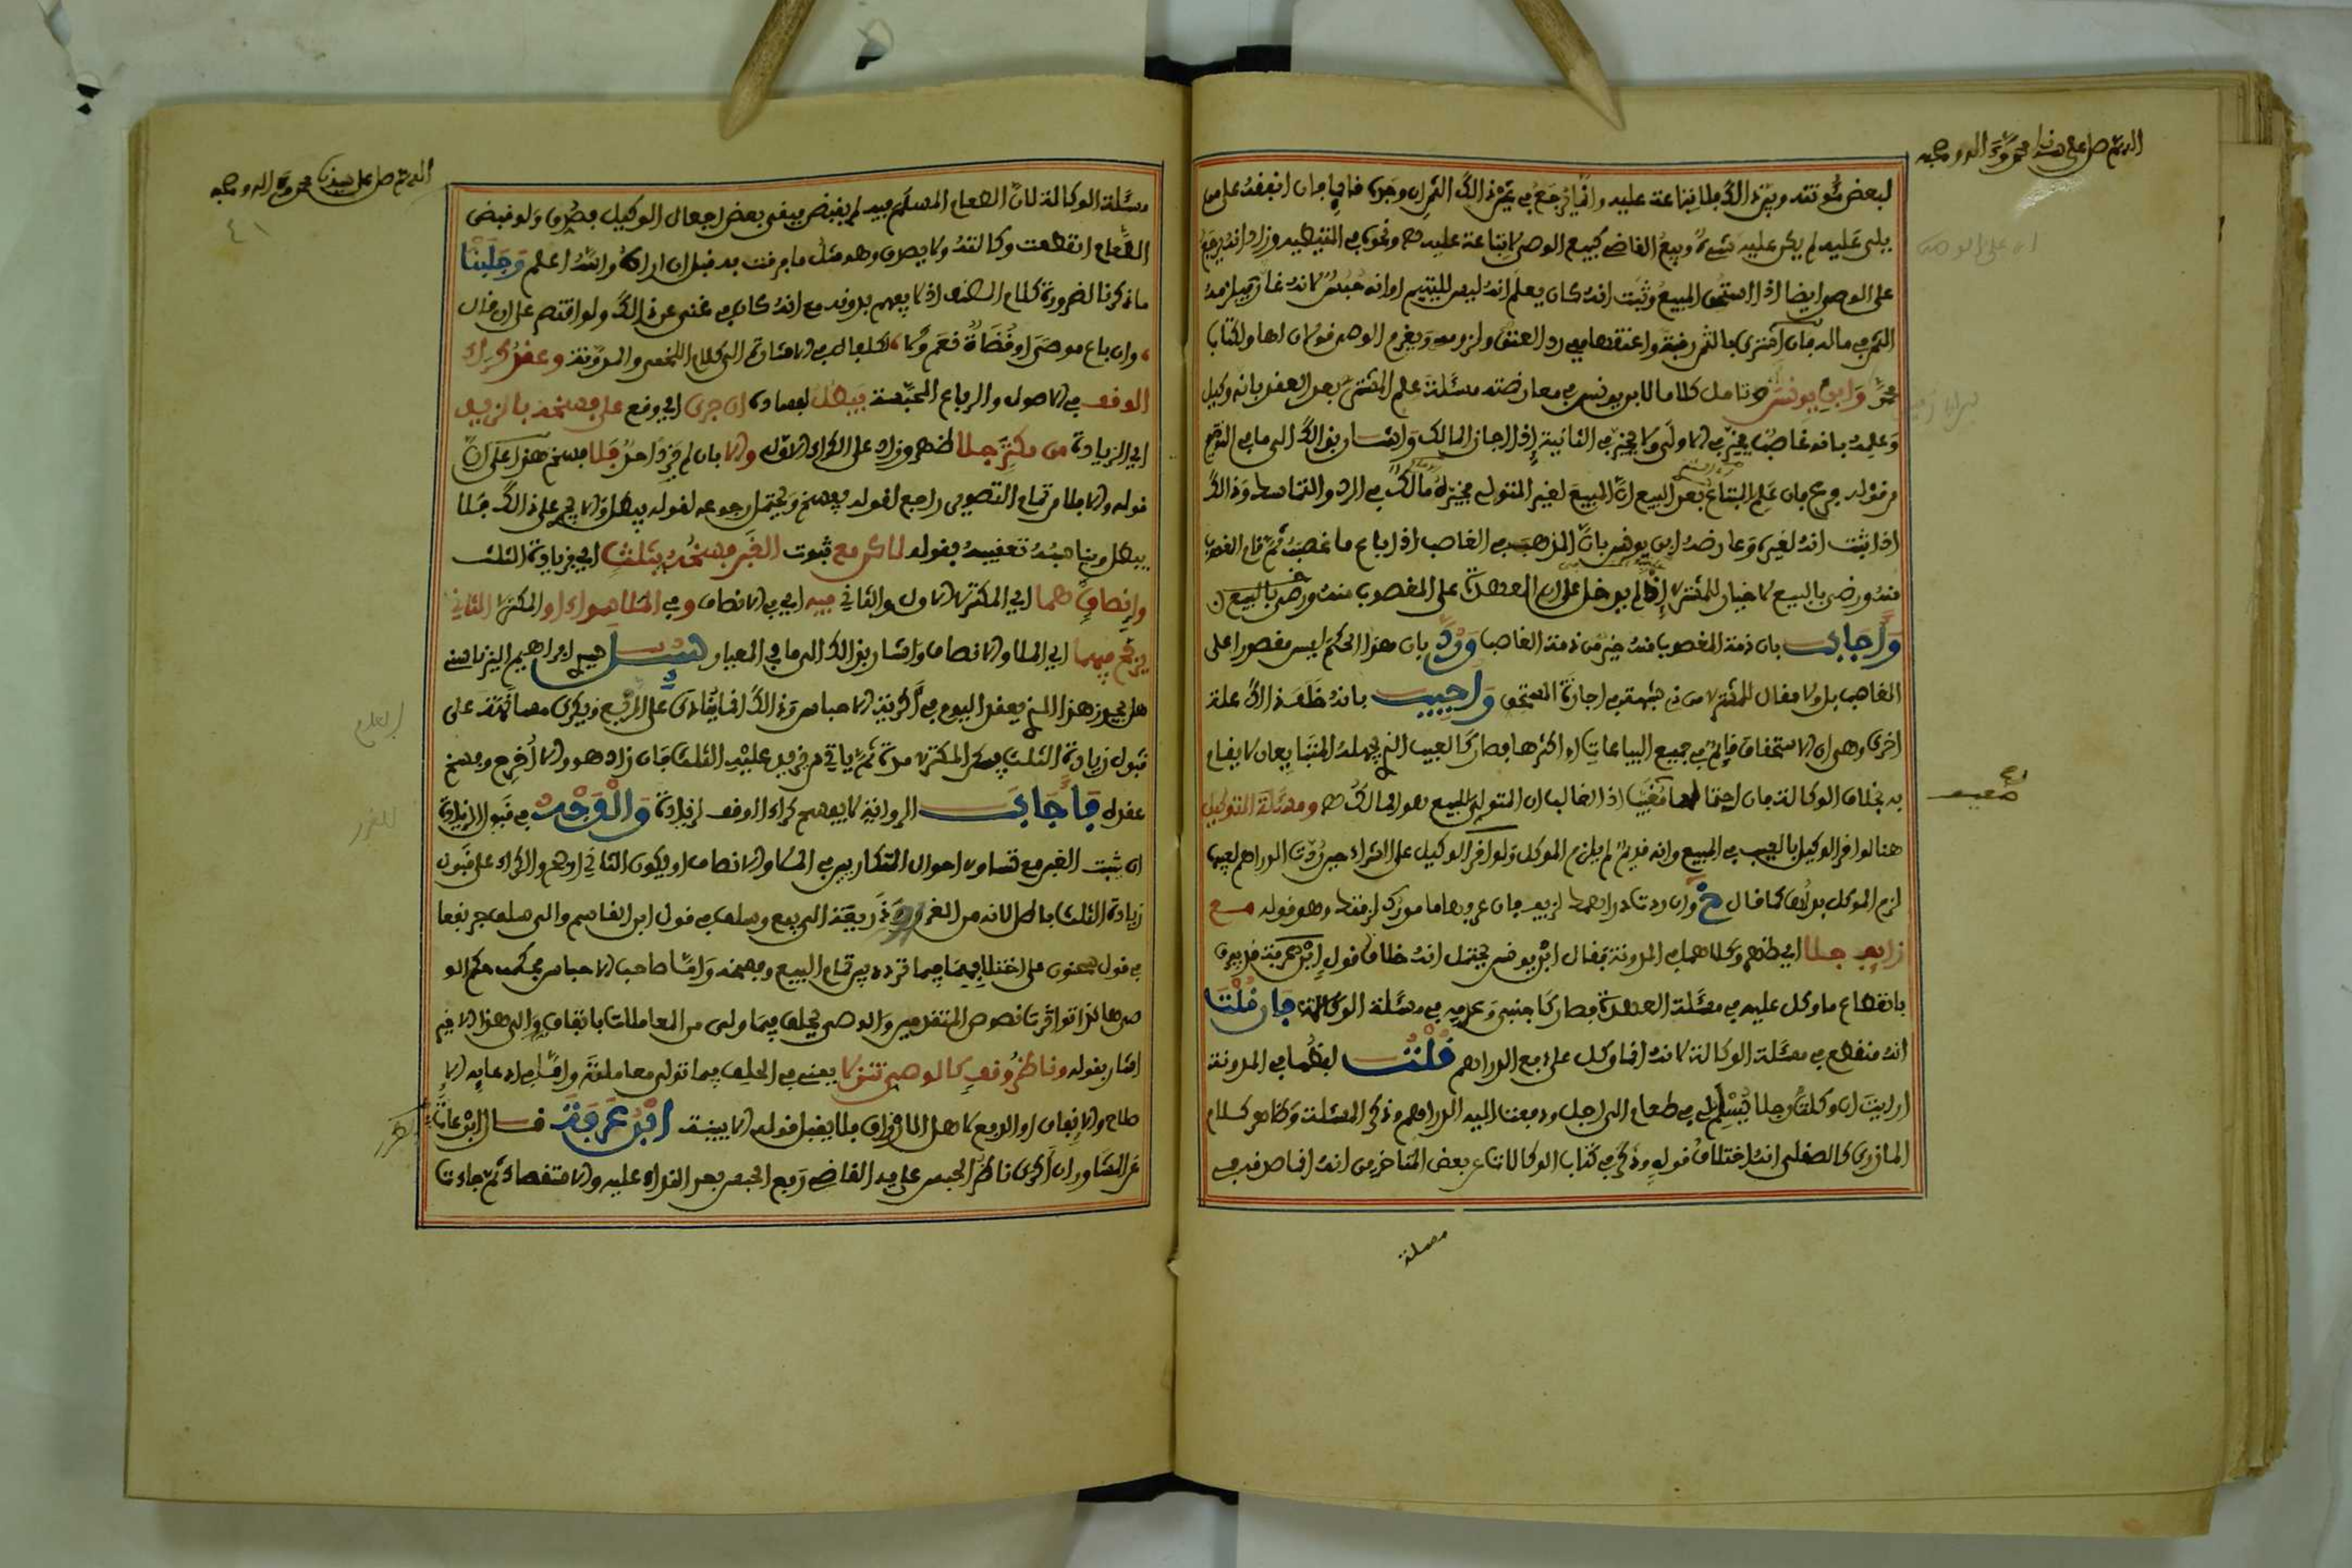 اللهم صل على سيدنا محمد وآله وصحبه
لبعض مئونته وبيّن ذالك فلا تباعة عليه وانما يرجع في ثمن ذالك الثمن ان وجده قائما فإن انفقه على من
يلي عليه لم يكن عليه شيء وبيع القاضي كبيع الوصي لا تباعة عليه ونحوه في التنبيه وزاد انه يرجع
على الوصي ايضا اذا استحق المبيع وثبت انه كان يعلم انه ليس لليتيم او انه حُبُس لانه غار فيلزمه
الثمن في ماله فإن اشترى بالثمن رقبة واعتقها ففي رد العتق ولزومه ويغرم الوصي قولان لها ولكتاب
محمد وابن يونس وتامل كلاما لابن يونس في معارضته مسئلة علم المشتري بعد العقد بانه وكيل
وعلمه بانه غاصب يخير في الاولى ولا يخير في الثانية إذا اجاز المالك واشار بذالك الى ما في التوضيح
من قوله فرع فإن علم المبتاع بعد البيع ان المبيع لغير المتولي خيره مالك في الرد والتماسك وذالك
اذا ثبت انه لغيره وعارضه ابن يونس بأن المذهب في الغاصب اذا باع ما غصبه ثم قام المغصوب
منه ورضي بالبيع لا خيار للمشتري إذا لم يدخل على ان العهدة على المغصوب منه ورضي بالبيع
وأجاب بان ذمة المغصوب منه خير من ذمة الغاصب ورد بان هذا الحكم ليس مقصورا على
الغاصب بل ولا مقال للمشتري من ذي شبهة في اجازة المستحق وأجيب بانه خلف ذالك علة
اخرى وهي ان الاستحقاق قائم في جميع البياعات او اكثرها فصار كالعيب الذي يجهله المتبايعان لا يقام
به بخلاف الوكالة فإن احتمالها مغيب اذ الغالب ان المتولي للبيع هو المالك ومسئلة التوكيل
هنا لو اقر الوكيل بالعيب في المبيع وانه قديم لم يلزم الموكل ولو اقر الوكيل على الشراء حين ردت الدراهم لعيبها
لزم الموكل بدلها كما قال خ وان ردت دراهمك لزيف فإن عرفها مامورك لزمتك وهو قوله مع
زايف جلا اي ظهر وكلاهما في المدونة فقال ابن يونس يحتمل انه خلاف قول ابن محرز قد يفرق
بانقطاع ما وكل عليه في مسئلة العهدة فصار كاجنبي وعدمه في مسئلة الوكالة فإن قلت
انه منقطع في مسئلة الوكالة لانه انما وكل على دفع الدراهم قلت لفظها في المدونة
ارايت ان وكلت رجلا يُسلِم لي في طعام الى اجل ودفعنا اليه الدراهم وذكر المسئلة وظاهر كلام
المازري كالصقلي انه اختلاف قوله وذكر في كتاب الوكالات عن بعض المتاخرين انه انما صدقه في
مسئلة
اللهم صل على سيدنا محمد وآله وصحبه
٤١
مسئلة الوكالة لان الطعام المسلم فيه لم يقبض فبقي بعض افعال الوكيل فصدق ولو قبض
الطعام انقطعت وكالته ولا يصدق وهو مثل ما فرقت به قبل ان اراه والله اعلم وجلبنا
ما ذكرنا لضرورة كلام المصنف اذ لا يفهم بدونه مع انه كان في غنى عن ذالك ولو اقتصر على ان قال
وان باع موصى او قضاة فعم ولا لكفاه في الاشارة الى كلام اللخمي والمدونة وعقد كراء
الوقف في الاصول والرباع المحبسة يبطل لفساده ان جرى اي وقع على فسخه بالزيد
اي الزيادة من مكتر جلا ظهر وزاد على الكراء الاول والا بان لم يزد احد فلا فسخ هذا على ان
قوله والا فلا من تمام التصوير راجع لقوله فيفسخ ويحتمل رجوعه لقوله يبطل والا يجر على ذالك فلا
يبطل ويناسبه تعقيبه بقوله لاكن مع ثبوت الغبن فسخه بثلث اي بزيادة الثلث
وانصاف هما اي المكتري الاول والثاني فيه اي في الانصاف وفي الملا سواء او المكتري الثاني
يرجح فيهما اي الملا والانصاف واشار بذالك الى ما في المعيار سئل سيدي ابراهيم اليزناسني
هل يجوز هذا الذي يفعل اليوم في أكرية الاحباس وذالك انما ينادى على الربع ويكرى مصافقة على
قبول زيادة الثلث يسكن المكتري مدة ثم ياتي من يزيد عليه الثلث فإن زاد هو والا أخرج وفسخ
عقده فأجاب الرواية لا يفسخ كراء الوقف لزيادة والوجه في قبول الزيادة
ان يثبت الغبن مع تساوي احوال المتكاريين في الملا والانصاف او يكون الثاني اوفر والكراء على قبول
زيادة الثلث باطل لانه من الغرر وذريعة الى بيع وسلف في قول ابن القاسم والى سلف جر نفعا
في قول سحنون على اختلافهما فيما تردد بين تمام البيع وفسخه وأما صاحب الاحباس فحكمه حكم الو
صي هاكذا تواترت نصوص المتقدمين والوصي يحلف فيما ولي من المعاملات باتفاق والى هذا الاخير
اشار بقوله وناظر وقف كالوصي تنزلا يعني في الحلف فيما تولى معاملته واما في ادعايه الا
صلاح والانفاق او الدفع لاهل المال فلا يقبل قوله الا ببينة ابن عرفة قال ابن عات
عن المشاور ان اكرى ناظر الحبس على يد القاضي ربع الحبس بعد النداء عليه والاستقصاء ثم جاءت